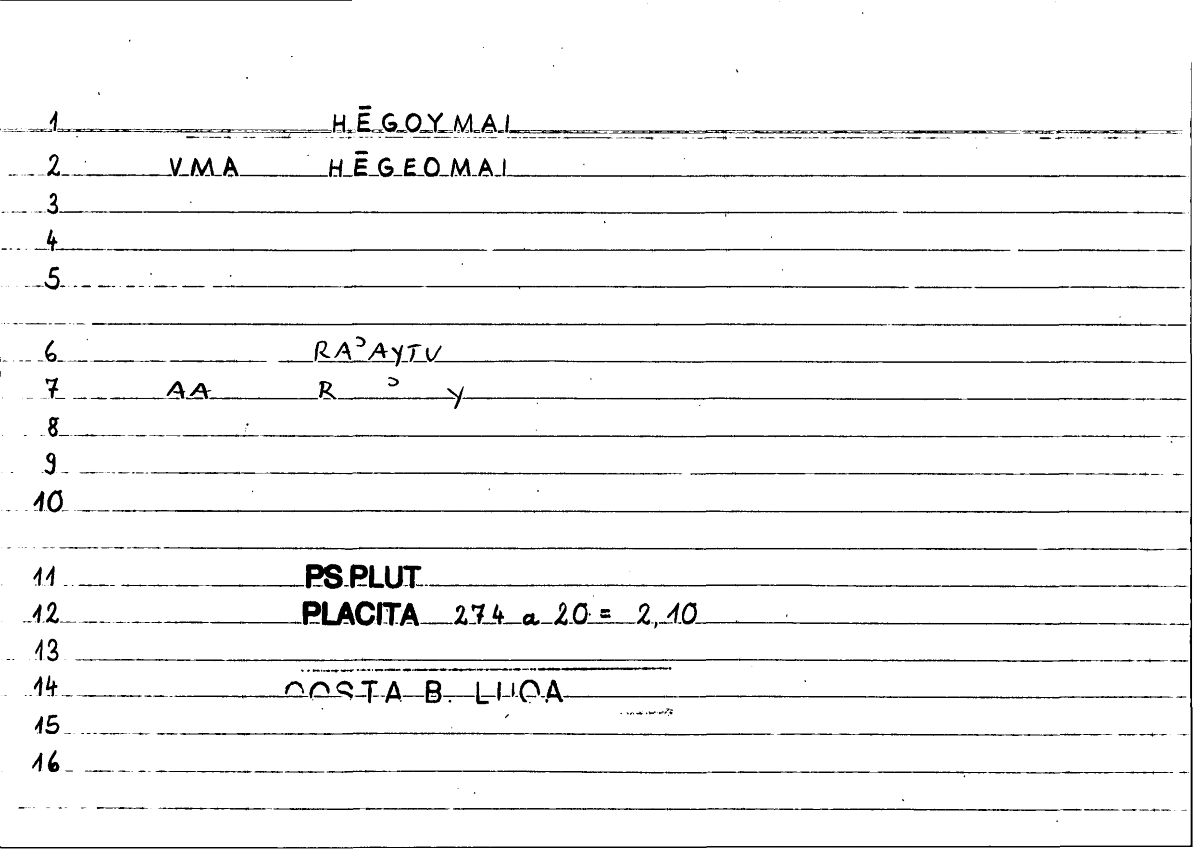 1 HĒGOYMAI
2 VMA HĒGEOMAI
3
4
5
6 RAʾAYTU
7 AA R ʾ Y
8
9
10
11 PS.PLUT
12 PLACITA 274 a 20 = 2,10
13
14 COSTA B. LUCA
15
16